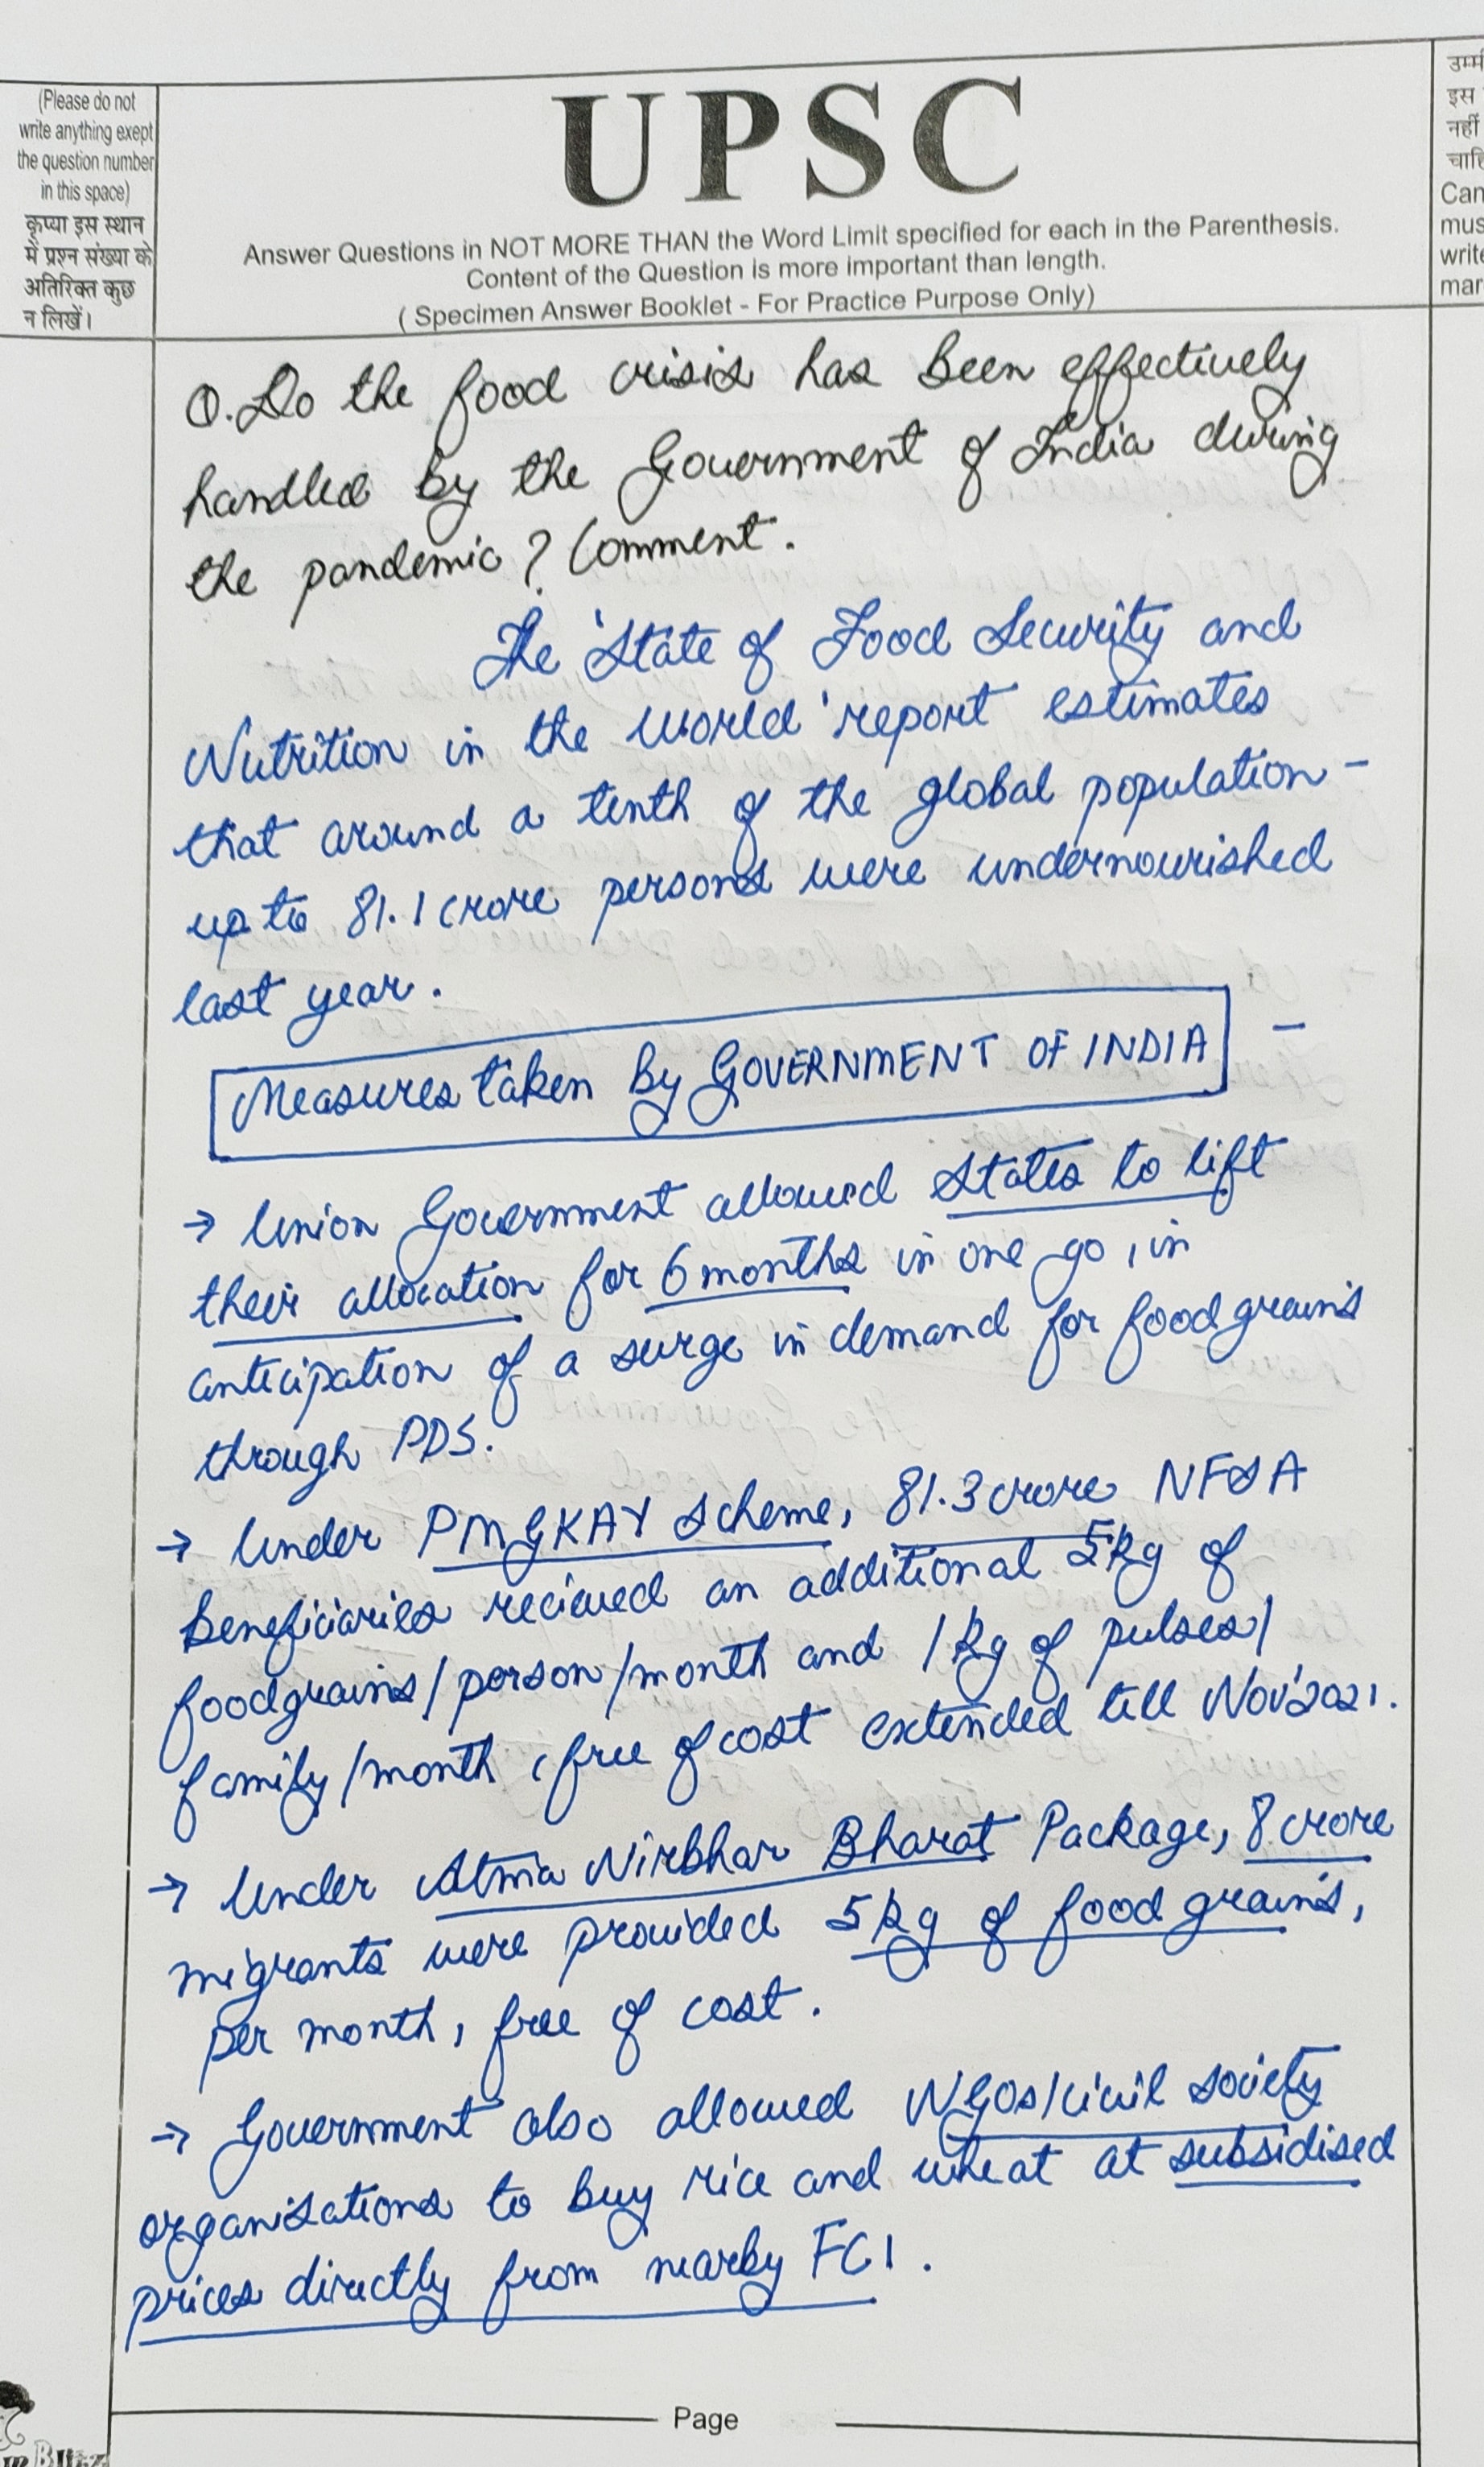 (Please do not
write anything exept
the question number
in this space)
कृप्या इस स्थान
में प्रश्न संख्या के
अतिरिक्त कुछ
न लिखें।
UPSC
Answer Questions in NOT MORE THAN the Word Limit specified for each in the Parenthesis.
Content of the Question is more important than length.
( Specimen Answer Booklet - For Practice Purpose Only)
उम्मी
इस
नहीं
चाहि
Can
mus
write
mar
Q. Do the food crisis has been effectively
handled by the Government of India during
the pandemic? Comment.
The 'State of Food Security and
Nutrition in the World' report estimates
that around a tenth of the global population -
up to 81.1 crore persons were undernourished
last year.
Measures taken by GOVERNMENT OF INDIA -
→ Union Government allowed States to lift
their allocation for 6 months in one go, in
anticipation of a surge in demand for foodgrains
through PDS.
→ Under PMGKAY scheme, 81.3 crore NFSA
beneficiaries recieved an additional 5kg of
foodgrains/person/month and 1kg of pulses/
family/month, free of cost extended till Nov'2021.
→ Under Atma Nirbhar Bharat Package, 8 crore
migrants were provided 5kg of food grains,
per month, free of cost.
→ Government also allowed NGOs/civil society
organisations to buy rice and wheat at subsidised
prices directly from nearby FCI.
Page